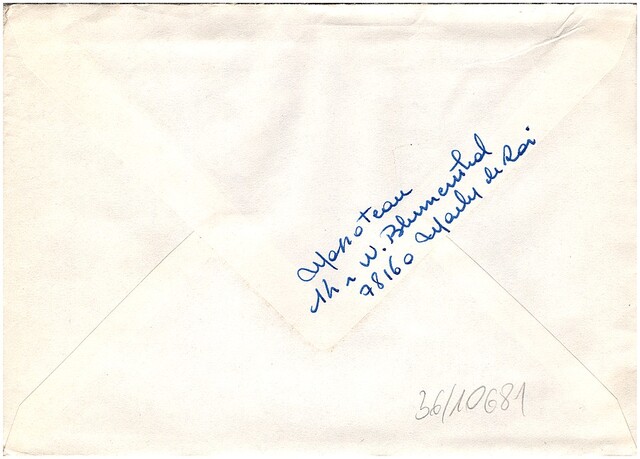 Massoteau
14 r W. Blumenthal
78160 Marly le Roi
36/10681